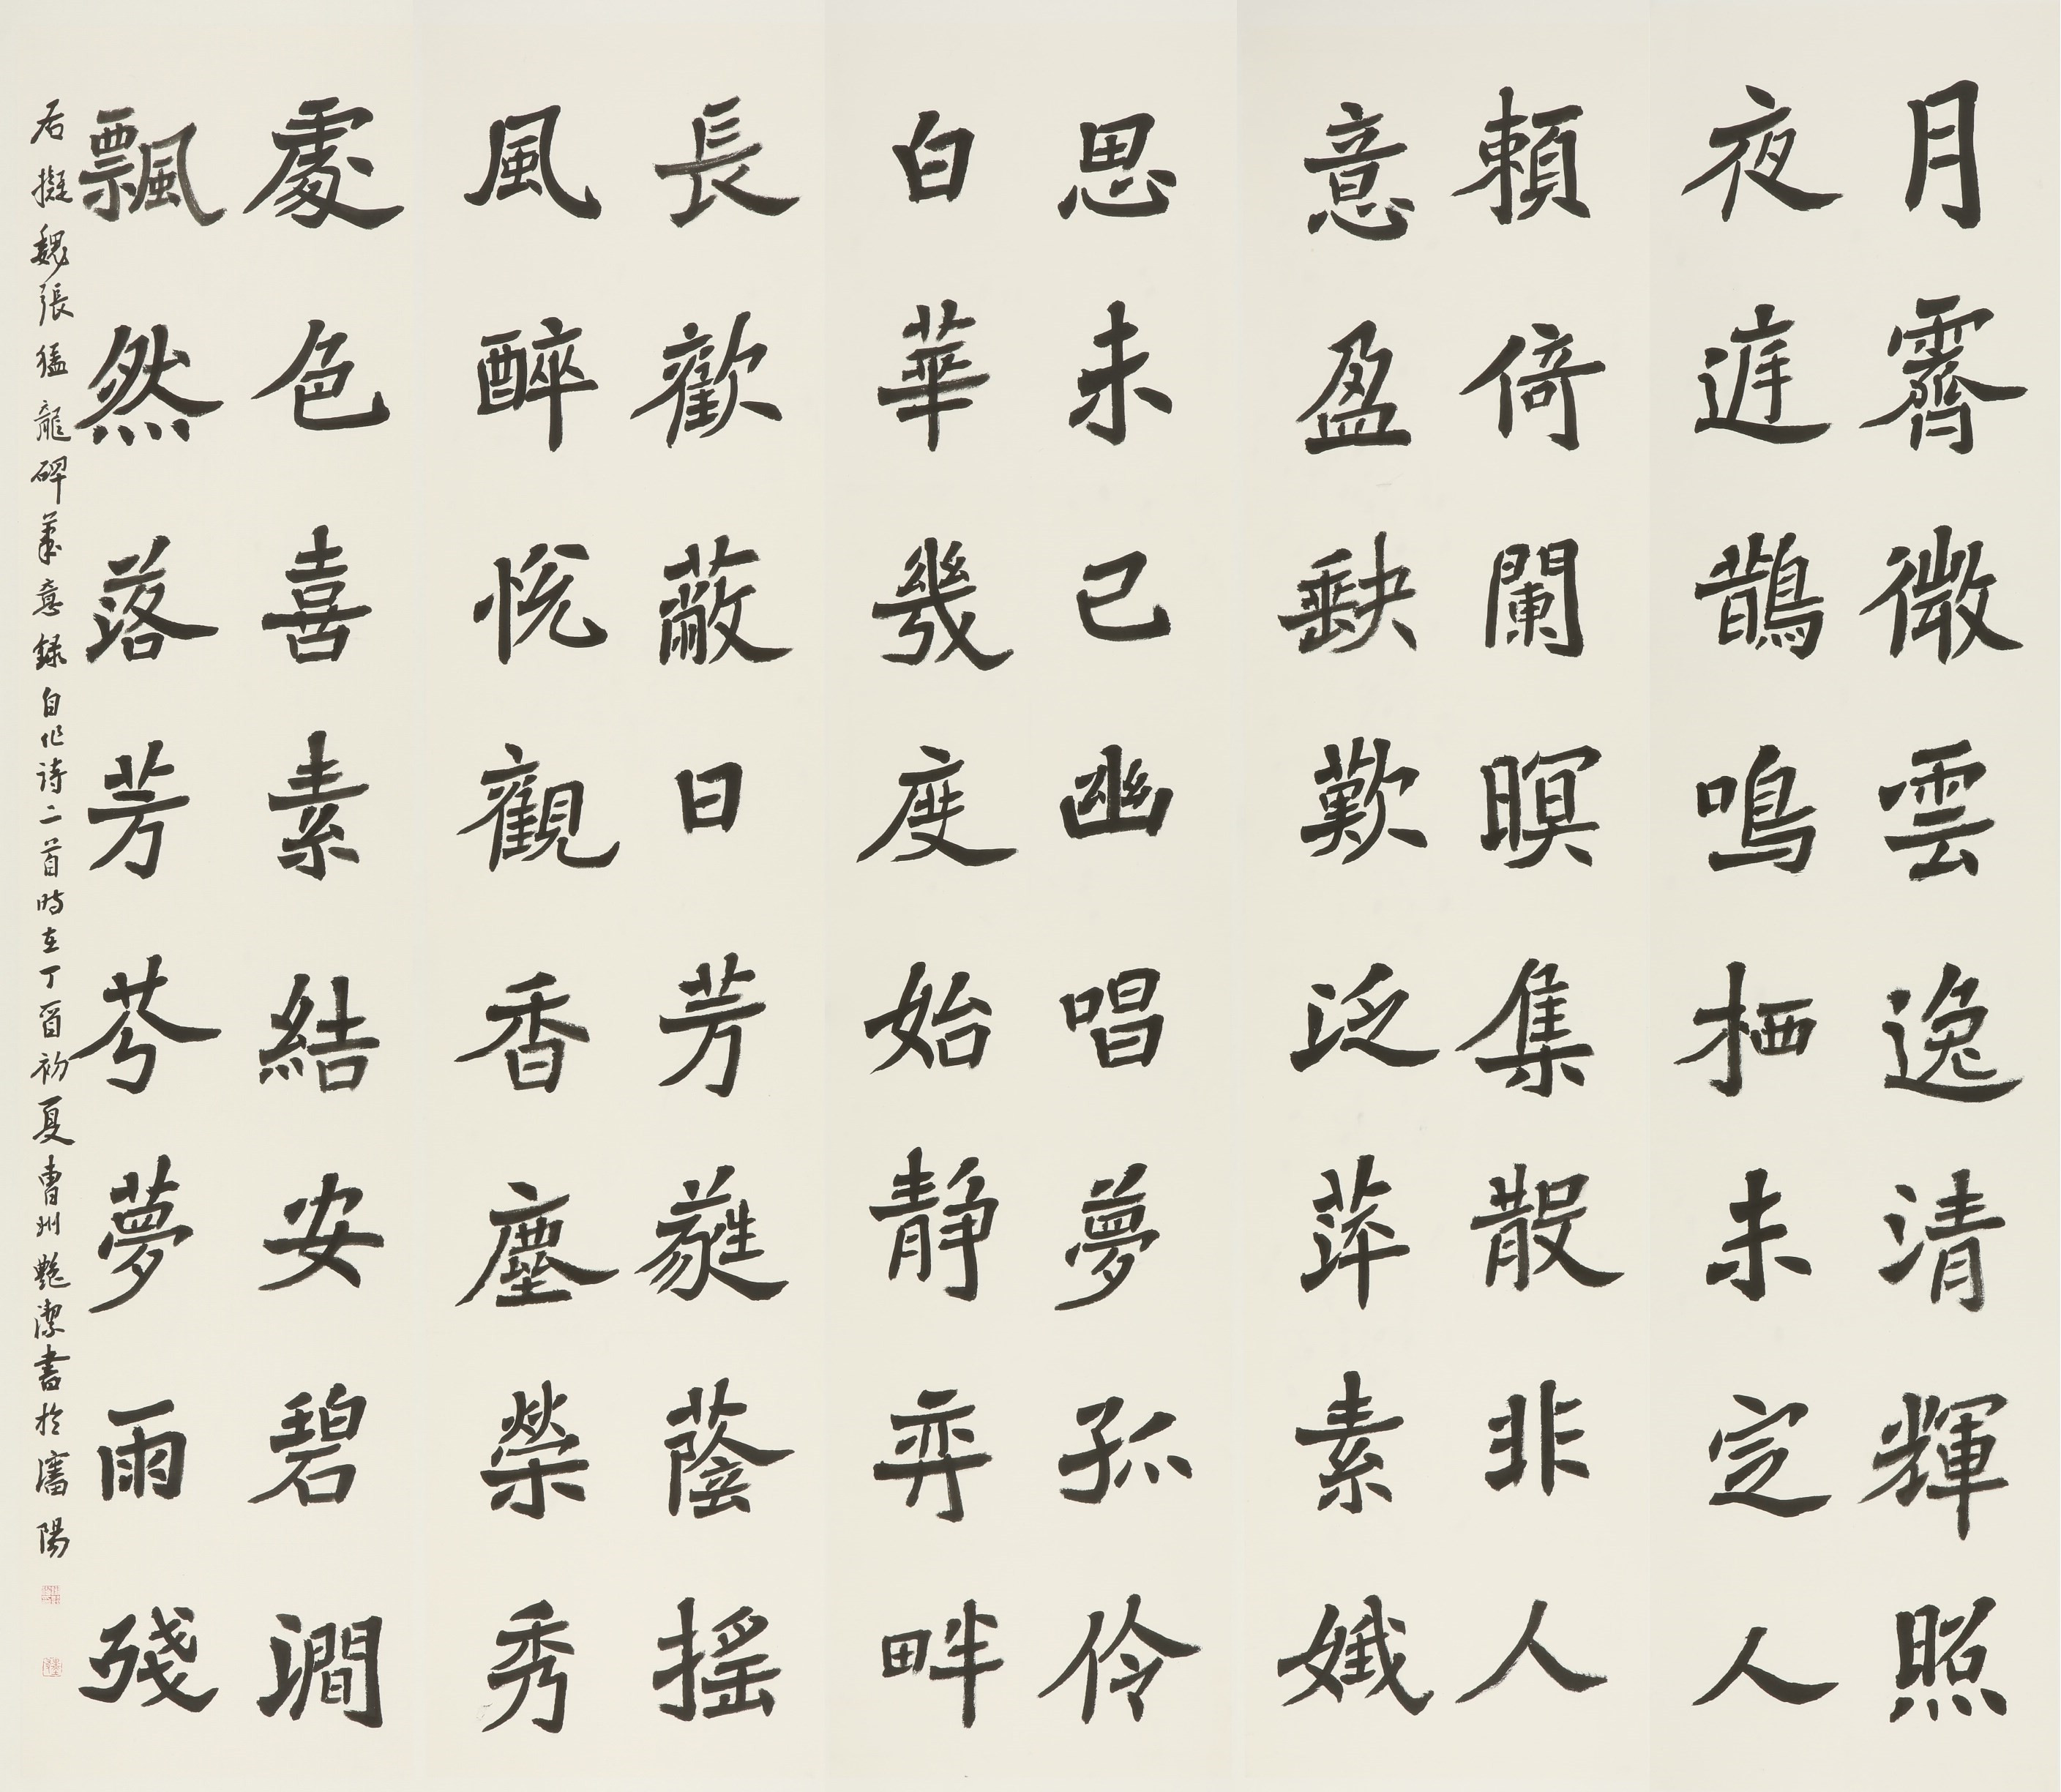 月霽微雲逸清輝照
夜庭鵲鳴栖未定人
頼倚闌暝集散非人
意盈缺歎泛萍素娥
思未已幽唱夢孤伶
白華幾度始静弈畔
長歡蔽日芳蕤蔭搖
風醉悅觀香塵榮秀
處色喜素結安碧澗
飄然落芳芬夢雨殘
右擬魏張猛龍碑筆意録自作詩二首時在丁酉初夏曹州艷潔書於瀋陽